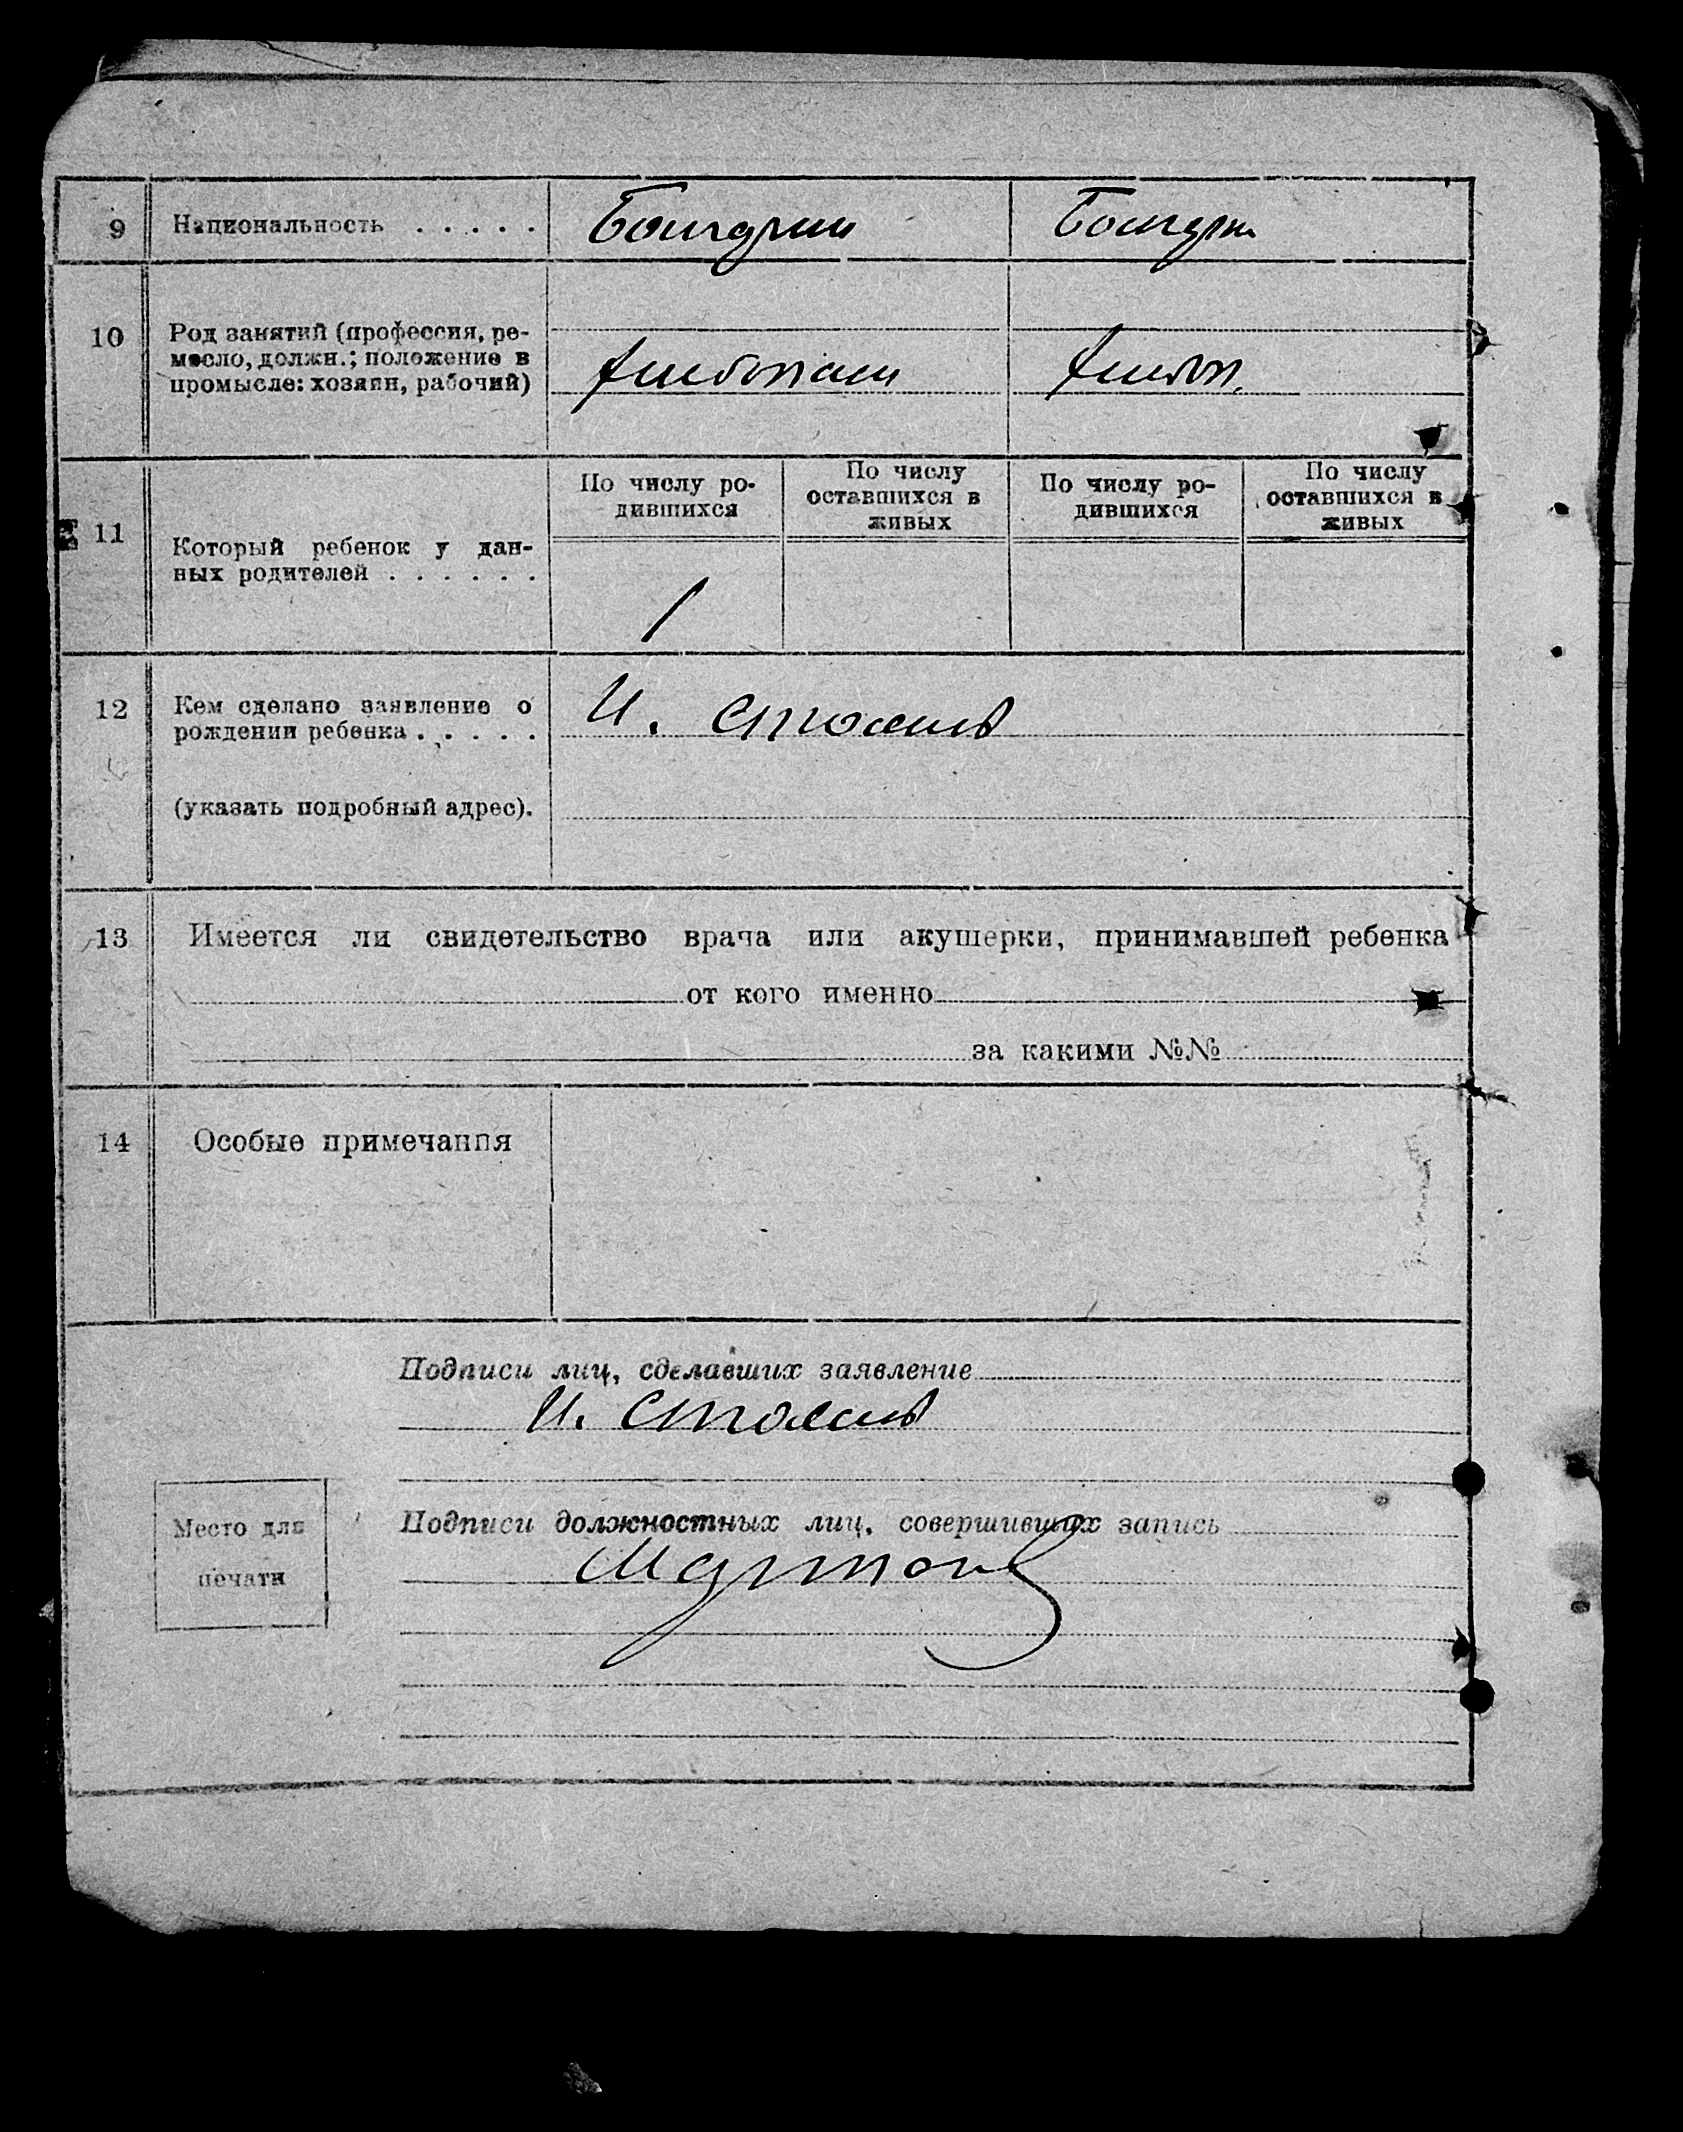 9 Национальность . . . . . Болгарин Болгарк.
10 Род занятий (профессия, ре-
месло, должн.; положение в
промысле: хозяин, рабочий)
хлебопаш хлебоп.
11 Который ребенок у дан-
ных родителей . . . . . .
По числу ро-
дившихся
По числу
оставшихся в
живых
По числу ро-
дившихся
По числу
оставшихся в
живых
1
12 Кем сделано заявление о
рождении ребенка . . . . . И.
(указать подробный адрес).
13 Имеется ли свидетельство врача или акушерки, принимавшей ребенка
от кого именно
за какими №№
14 Особые примечания
Подписи лиц, сделавших заявление
И.
Место для
печати
Подписи должностных лиц, совершивших запись